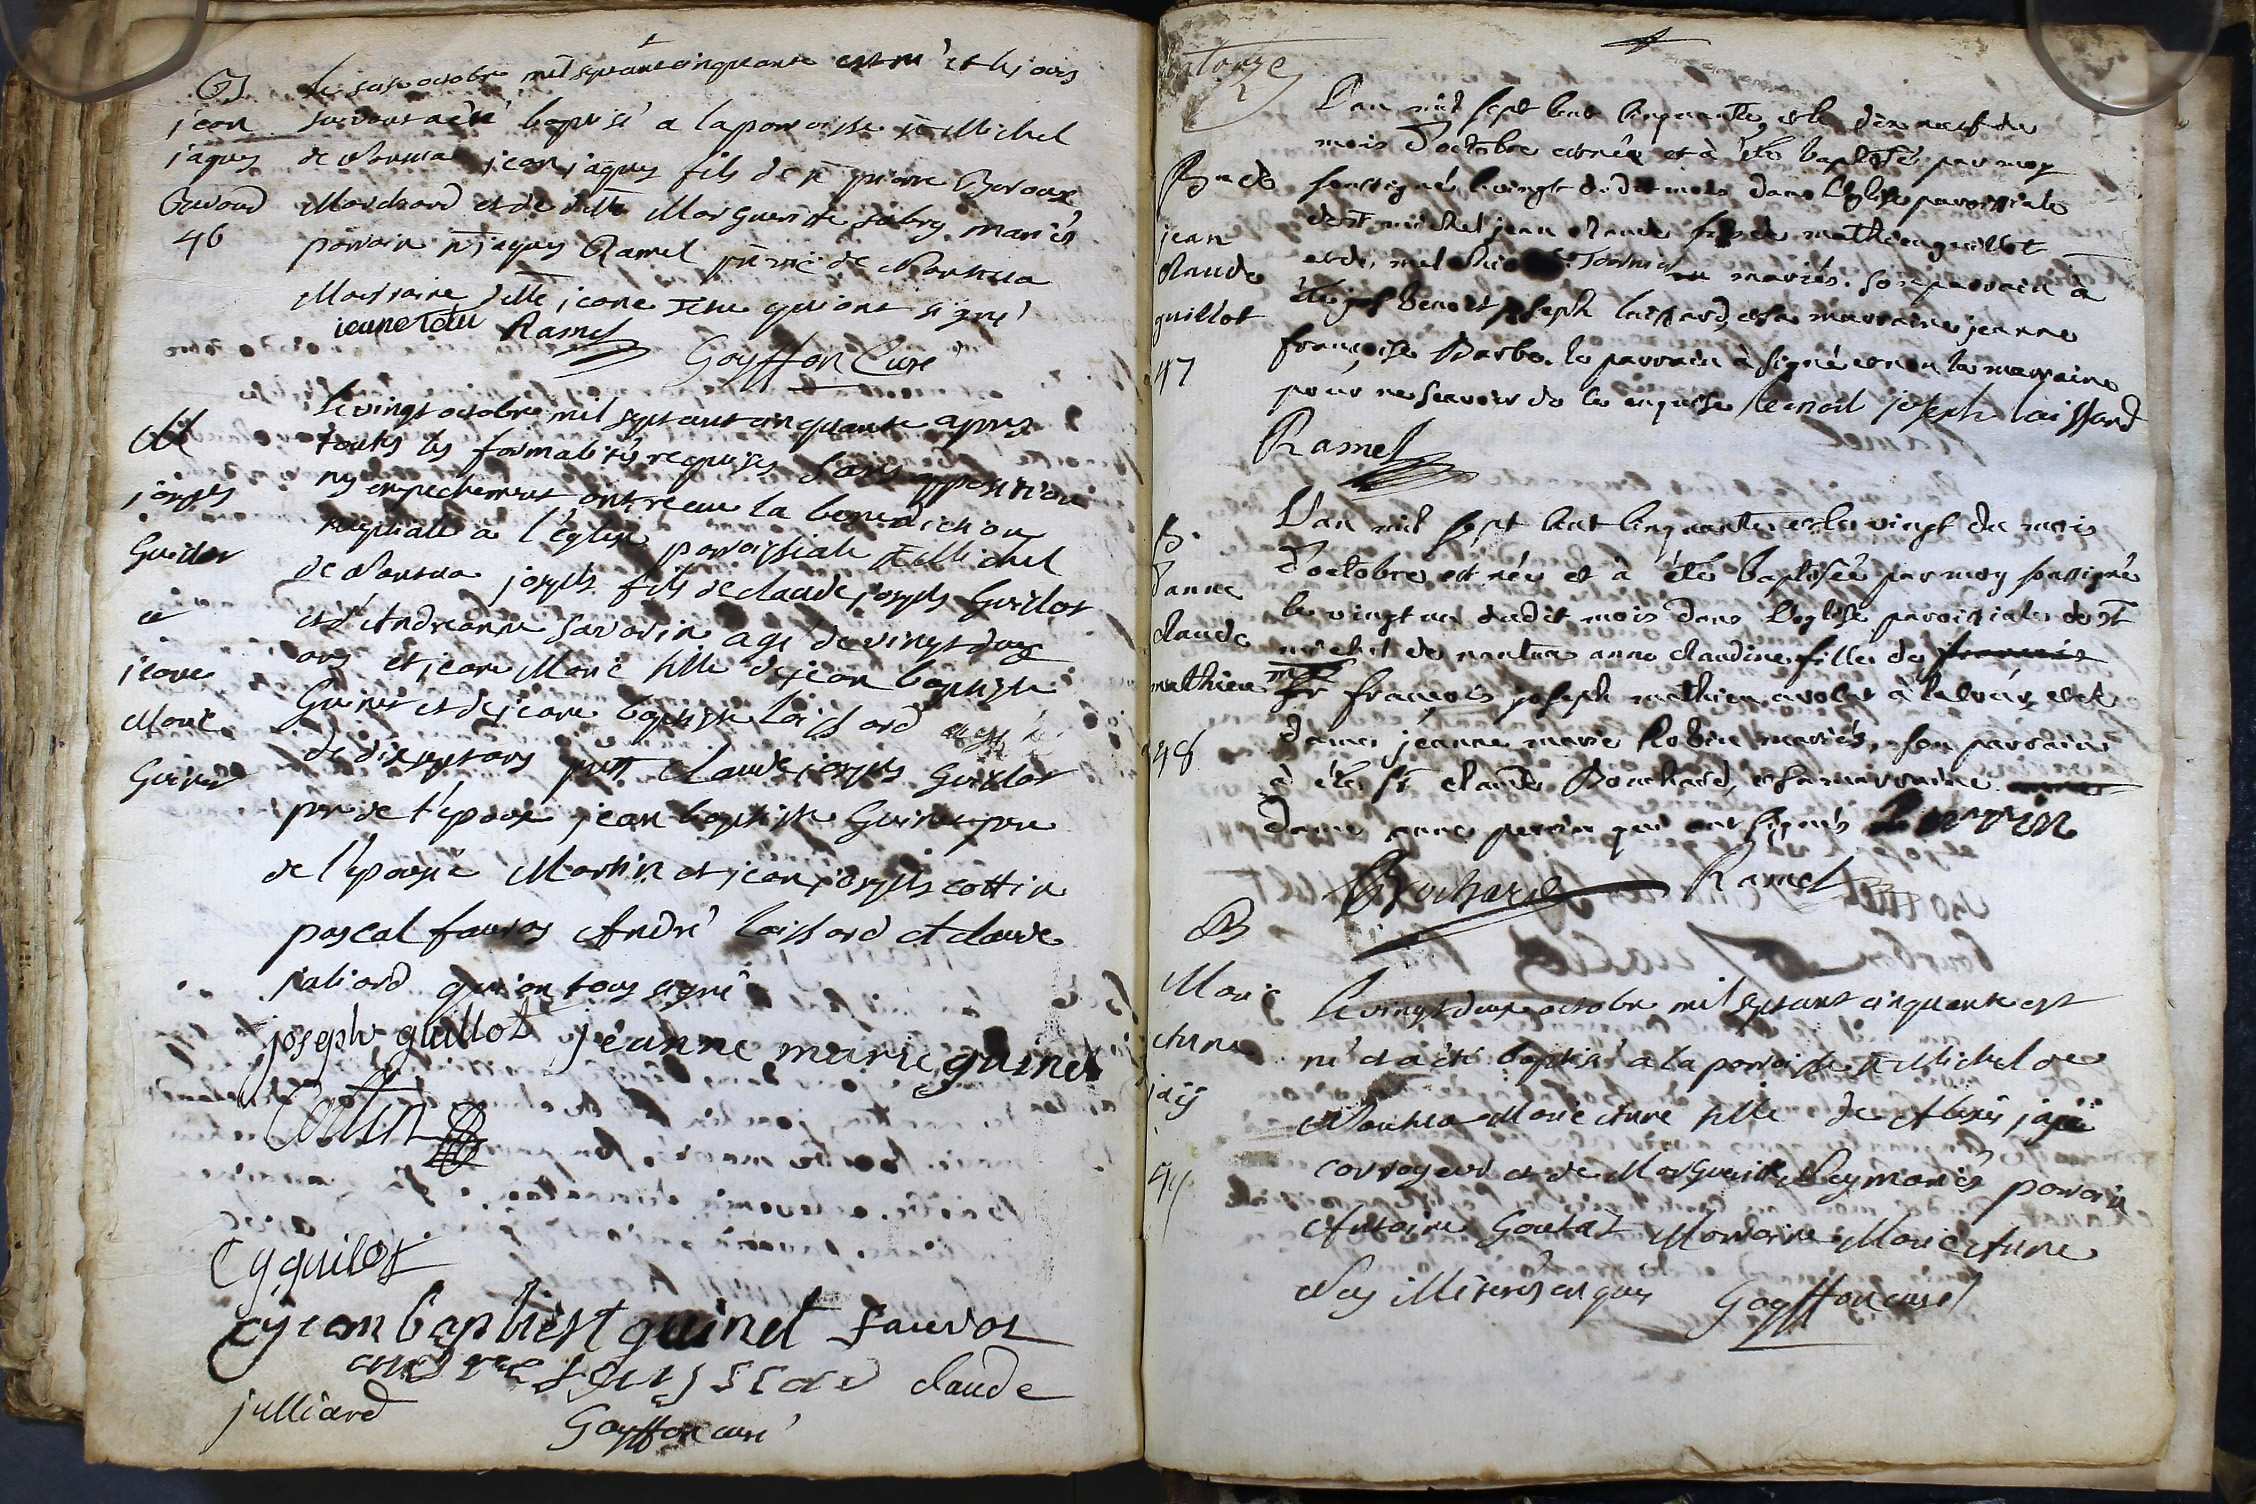 B
jean
jaques
46
Le seise octobre mil septcentcinquante est né et le jour
suivant a été baptisé a la paroisse st Michel
de Nantua jean jaques fils de sr pierre
Marchand et de dlle Marguerite fabry mariés
parrain sr jaques Ramel de Nantua
Marraine dlle jeane tetu qui ont signé
jeane tetu Ramel
Goyffon Curé
M
joseph
Guillot
et
jeane
Marie
Guinet
Le vingt octobre mil septcentcinquante apres
toutes les formalités requises sans opposition
ny empechement ont receu la benediction
nuptiale a l'église paroissiale st Michel
de Nantua joseph fils de claude joseph Guillot
et d'Andreanne savarin agé de vingt deux
ans et jeane Marie fille de jean baptiste
Guinet et de jeane baptiste laissard agée
de dixsept ans pnt claude joseph Guillot
pere de l'epoux jean baptiste Guinet pere
de l'epouse Martin et jean joseph cottin
pascal fauros André laissard et claude
juliard qui on tous signé
joseph guillot jeanne marie guinet
Cottin
Cy guilot
jean baptiest guinet fauros
claude
julliard
Goyffon curé
2
jean
claude
guillot
47
L'an mil sept cent cinquante, et le dix neuf du
mois d'octobre est né et à été baptisé par moy
soussigné le vingt dudit mois dans l'eglise paroissiale
de st michel jean claude fils de mathieu guillot
mariés. son parrain à
été benoit joseph laissard, et sa marraine jeanne
françoise Barbe. le parrain à signé et non la marraine
pour ne sçavoir de ce enquise benoit joseph laissard
Ramel
B.
d'anne
claude
mathieu
48
L'an mil sept cent cinquante et le vingt du mois
d'octobre est née et à été baptisée par moy soussigné
le vingt un dudit mois dans l'eglise paroissiale de st
michel de nantua anne claudine fille de francois
françois joseph mathieu avocat à la cour, et de
dame jeanne marie Robin mariés, son parrain
à été sr claude Bouchard, et sa marraine
dame anne perrin qui ont signés perrin
Bochard Ramel
B
Marie
Anne
jaÿ
49
Le vingtdeux octobre mil septcent cinquante est
né et a été baptisé a la paroisse st Michel de
Nantua Marie Anne fille de Alexis jaÿ
corroyeur et de Marguerite Ney mariés parrain
Antoine Goutat Marraine Marie Anne
Ney illiterés enquis Goyffon curé